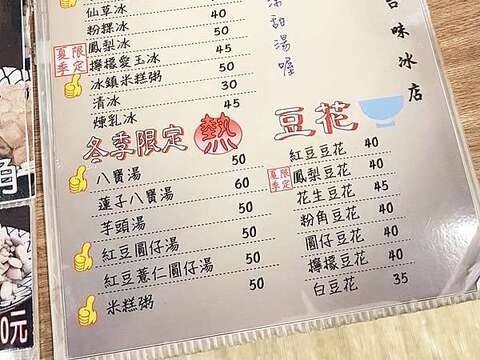 仙草冰 50
粉粿冰 40
夏季限定 鳳梨冰 50
檸檬愛玉冰 45
冰鎮米糕粥 50
清冰 30
煉乳冰 45
冬季限定 熱
八寶湯 50
蓮子八寶湯 60
芋頭湯 50
紅豆圓仔湯 50
紅豆薏仁圓仔湯 50
米糕粥 50
豆花
紅豆豆花 40
夏季限定 鳳梨豆花 40
花生豆花 45
粉角豆花 40
圓仔豆花 40
檸檬豆花 40
白豆花 35
甜湯喔
味冰店
角
0元